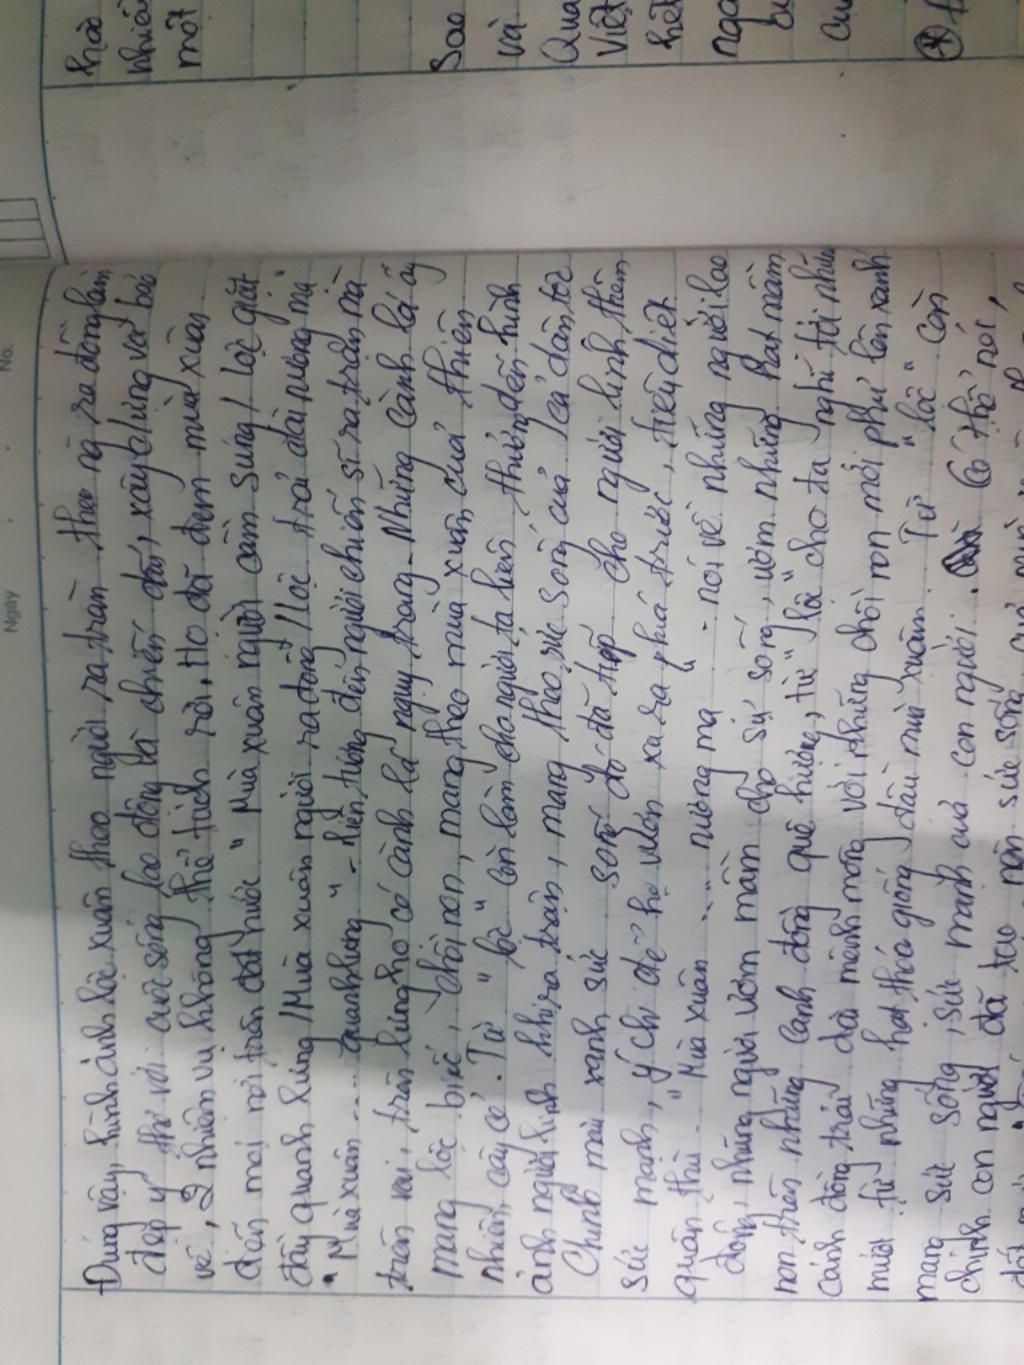 Ngày
No.
Đúng vậy, hình ảnh lộc xuân theo người ra trận theo ng ra đồng làm
đẹp ý thơ với cuộc sống lao động và chiến đấu, xây dựng và bảo
vệ, 2 nhiệm vụ không thể tách rời. Họ đã đem mùa xuân
đến mọi nơi trên đất nước " Mùa xuân người cầm súng / Lộc giắt
đầy quanh lưng / Mùa xuân người ra đồng / Lộc trải dài nương mạ "
" Mùa xuân .... quanh lưng " - liên tưởng đến người chiến sĩ ra trận mà
trên vai, trên lưng họ có cành lá ngụy trang. Những cành lá ấy
mang lộc biếc, chồi non, mang theo mùa xuân của thiên
nhiên, cây cỏ. Từ " lộc " còn làm cho người ta liên tưởng đến hình
ảnh người lính khi ra trận, mang theo sức sống của cả dân tộc
Chính màu xanh sức sống đó đã tiếp cho người lính thêm
sức mạnh, ý chí để họ vươn xa ra phía trước, tiêu diệt
quân thù. " Mùa xuân ..... nương mạ " - nói về những người lao
động, những người ươm mầm cho sự sống, ươm những hạt mầm
non trên những cánh đồng quê hương, từ " lộc " cho ta nghĩ tới những
cánh đồng trải dài mênh mông với những chồi non mới phủ lên xanh
mướt từ những hạt thóc giống đầu mùa xuân. Từ " lộc " còn
mang sức sống, sức mạnh của con người. Có thể nói,
chính con người đã tạo nên sức sống của
hòa
nhiên
một
Sao
và
Qua
Việt